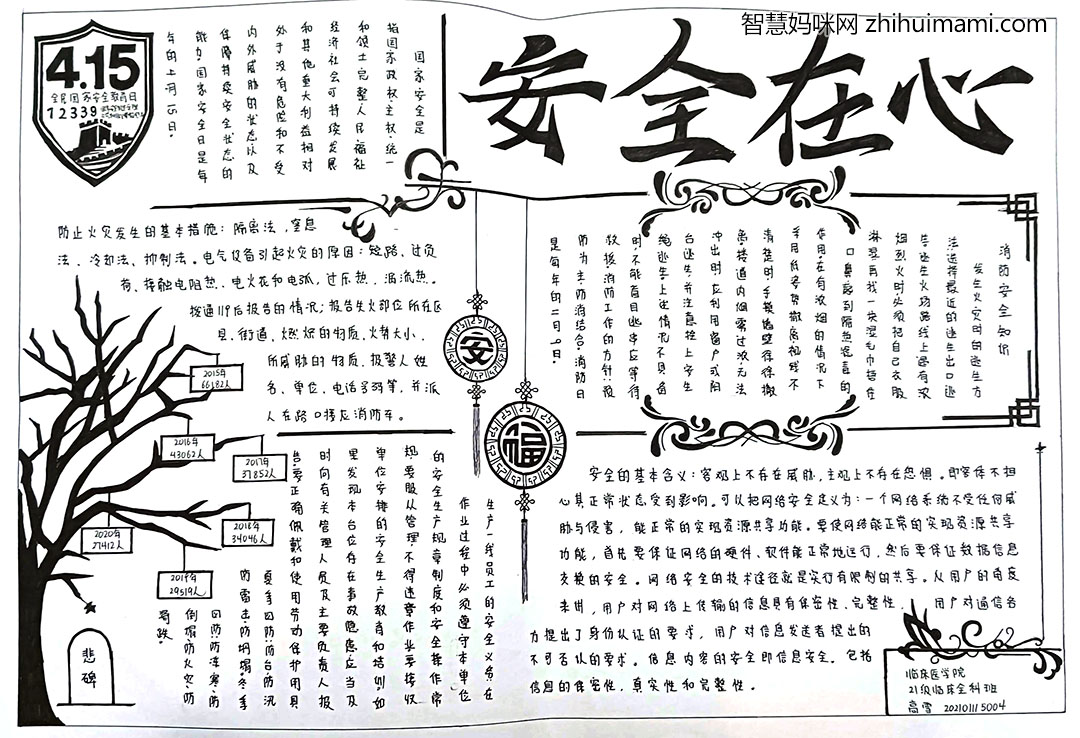 智慧妈咪网 zhihuimami.com
安全在心
4.15
全民国家安全教育日
12339
国家安全是
指国家政权、主权、统一
和领土完整、人民福祉
经济社会可持续发展
和其他重大利益相对
处于没有危险和不受
内外威胁的状态以及
保障持续安全状态的
能力,国家安全日是每
年的4月15日。
防止火灾发生的基本措施:隔离法,窒息
法、冷却法、抑制法。电气设备引起火灾的原因:短路、过负
荷、接触电阻热、电火花和电弧,过乐热、涡流热。
拨通119后报告的情况:报告失火部位所在区
县,街道,燃烧的物质,火势大小,
所威胁的物质,报警人姓
名、单位、电话号码等,并派
人在路口接应消防车。
消防安全知识
发生火灾时的逃生方
法:选择最近的逃生出口逃
生逃生火场路线上遇有浓
烟烈火时必须把自己衣服
淋湿再找一块湿毛巾捂在
口鼻起到隔热滤毒的
作用在有浓烟的情况下
采用低姿势撤离视线不
清楚时手摸墙壁徐徐撤
离楼道内烟雾过浓无法
冲出时,应利用窗户或阳
台逃生,并注意拴上安全
绳逃生上述情况不具备
时,不能盲目逃生应等待
救援,消防工作的方针:预
防为主,防消结合,消防日
是每年的11月9日。
安
福
2015年
66182人
2016年
43062人
2017年
37852人
2018年
34046人
2019年
29519人
2020年
27412人
悲
碑
生产一线员工的安全义务:在
作业过程中,必须遵守本单位
的安全生产规章制度和安全操作常
规,要服从管理,不得违章作业要接收
单位安排的安全生产教育和培训,如
里发现本台位存在事故隐患应当及
时向有关管理人员及主要负责人报
告要正确佩戴和使用劳动保护用具
夏季四防:防台防汛
防雷击防坍塌,冬季
四防:防冻寒、防
倒塌、防火灾、防
安全的基本含义:客观上不存在威胁,主观上不存在恐惧。即客体不担
心其正常状态受到影响。可以把网络安全定义为:一个网络系统不受任何威
胁与侵害,能正常的实现资源共享功能。要使网络能正常的实现资源共享
功能,首先要保证网络的硬件、软件能正常地运行,然后要保证数据信息
交换的安全。网络安全的技术途径就是实行有限制的共享。从用户的角度
来讲,用户对网络上传输的信息具有保密性、完整性, 用户对通信各
方提出了身份认证的要求,用户对信息发送者提出的
不可否认的要求。信息内容的安全即信息安全。包括
信息的保密性,真实性和完整性。
临床医学院
21级临床全科班
高雪 202101115004